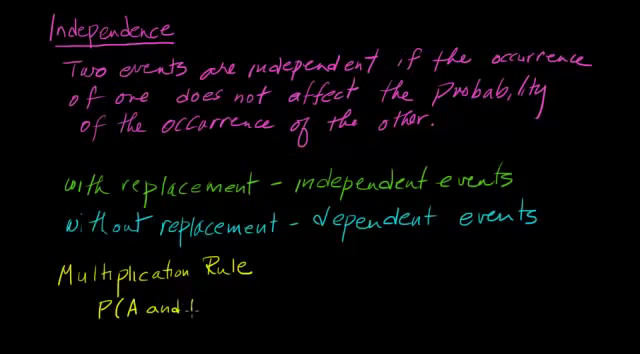 Independence
Two events are independent if the occurrence
of one does not affect the probability
of the occurrence of the other.
with replacement - independent events
without replacement - dependent events
Multiplication Rule
P(A and